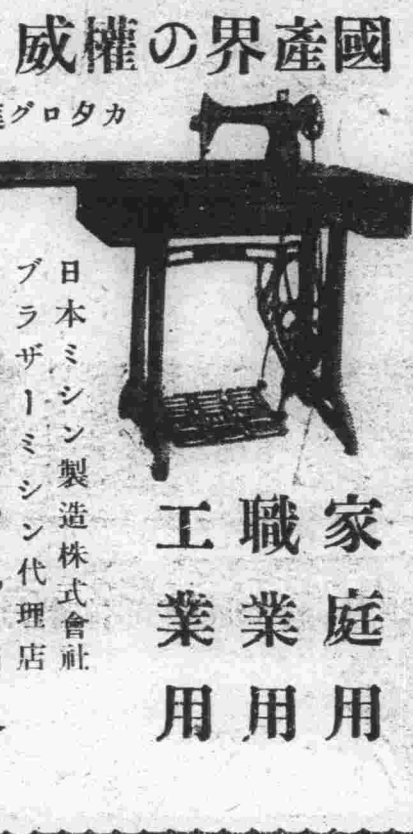 國產界の權威
カタログ
家庭用
職業用
工業用
日本ミシン製造株式會社
ブラザーミシン代理店